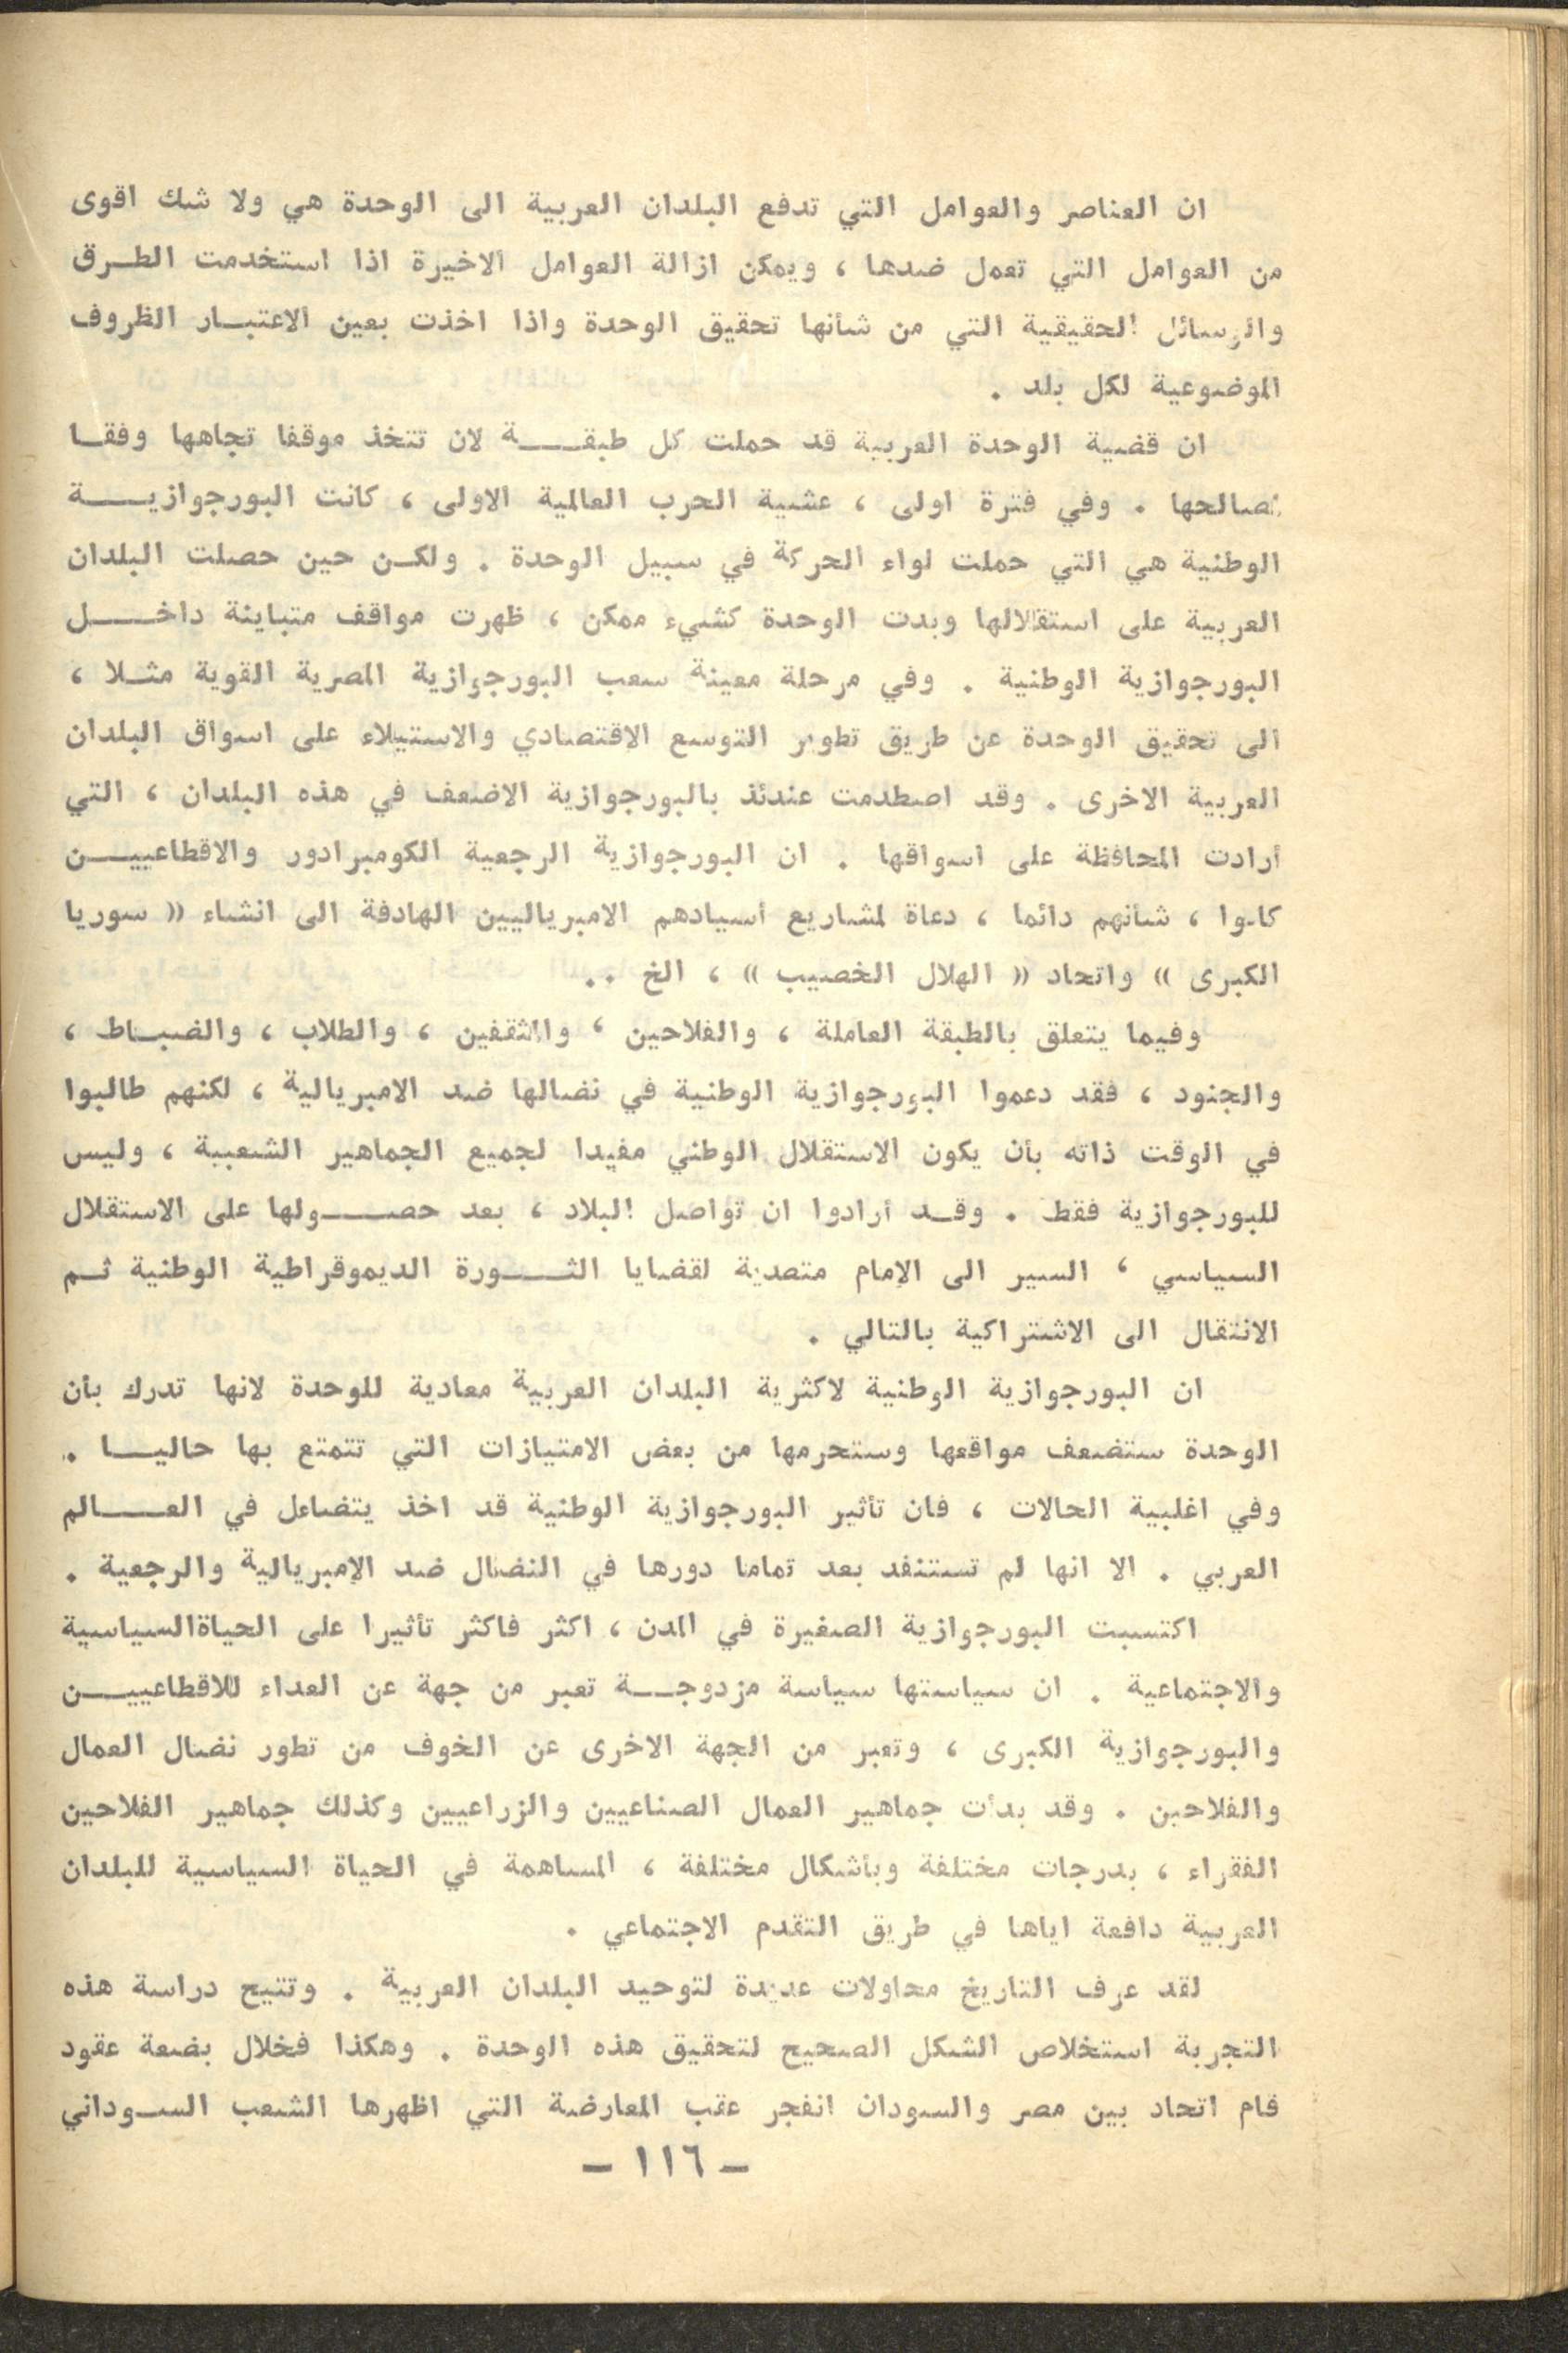 ان العناصر والعوامل التي تدفع البلدان العربية الى الوحدة هي ولا شك اقوى
من العوامل التي تعمل ضدها ، ويمكن ازالة العوامل الاخيرة اذا استخدمت الطرق
والوسائل الحقيقية التي من شأنها تحقيق الوحدة واذا اخذت بعين الاعتبار الظروف
الموضوعية لكل بلد .
ان قضية الوحدة العربية قد حملت كل طبقة لان تتخذ موقفا تجاهها وفقا
لمصالحها . وفي فترة اولى ، عشية الحرب العالمية الاولى ، كانت البورجوازية
الوطنية هي التي حملت لواء الحركة في سبيل الوحدة . ولكن حين حصلت البلدان
العربية على استقلالها وبدت الوحدة كشيء ممكن ، ظهرت مواقف متباينة داخل
البورجوازية الوطنية . وفي مرحلة معينة سعب البورجوازية المصرية القوية مثلا ،
الى تحقيق الوحدة عن طريق تطوير التوسع الاقتصادي والاستيلاء على اسواق البلدان
العربية الاخرى . وقد اصطدمت عندئذ بالبورجوازية الاضعف في هذه البلدان ، التي
أرادت المحافظة على اسواقها . ان البورجوازية الرجعية الكومبرادور والاقطاعيين
كانوا ، شأنهم دائما ، دعاة لمشاريع أسيادهم الامبرياليين الهادفة الى انشاء « سوريا
الكبرى » واتحاد « الهلال الخصيب » ، الخ ..
وفيما يتعلق بالطبقة العاملة ، والفلاحين ، والمثقفين ، والطلاب ، والضباط ،
والجنود ، فقد دعموا البورجوازية الوطنية في نضالها ضد الامبريالية ، لكنهم طالبوا
في الوقت ذاته بأن يكون الاستقلال الوطني مفيدا لجميع الجماهير الشعبية ، وليس
للبورجوازية فقط . وقد أرادوا ان تواصل البلاد ، بعد حصولها على الاستقلال
السياسي ، السير الى الامام متصدية لقضايا الثورة الديموقراطية الوطنية ثم
الانتقال الى الاشتراكية بالتالي .
ان البورجوازية الوطنية لاكثرية البلدان العربية معادية للوحدة لانها تدرك بأن
الوحدة ستضعف مواقعها وستحرمها من بعض الامتيازات التي تتمتع بها حاليا .
وفي اغلبية الحالات ، فان تأثير البورجوازية الوطنية قد اخذ يتضاءل في العالم
العربي . الا انها لم تستنفد بعد تماما دورها في النضال ضد الامبريالية والرجعية .
اكتسبت البورجوازية الصغيرة في المدن ، اكثر فاكثر تأثيرا على الحياةالسياسية
والاجتماعية . ان سياستها سياسة مزدوجة تعبر من جهة عن العداء للاقطاعيين
والبورجوازية الكبرى ، وتعبر من الجهة الاخرى عن الخوف من تطور نضال العمال
والفلاحين . وقد بدأت جماهير العمال الصناعيين والزراعيين وكذلك جماهير الفلاحين
الفقراء ، بدرجات مختلفة وبأشكال مختلفة ، المساهمة في الحياة السياسية للبلدان
العربية دافعة اياها في طريق التقدم الاجتماعي .
لقد عرف التاريخ محاولات عديدة لتوحيد البلدان العربية . وتتيح دراسة هذه
التجربة استخلاص الشكل الصحيح لتحقيق هذه الوحدة . وهكذا فخلال بضعة عقود
قام اتحاد بين مصر والسودان انفجر عقب المعارضة التي اظهرها الشعب السوداني
– ١١٦ –